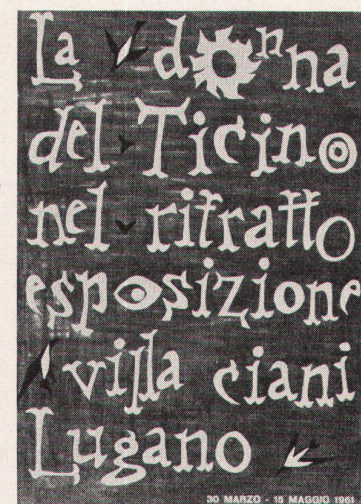 La donna
del Ticino
nel ritratto
esposizione
villa ciani
Lugano
30 MARZO - 15 MAGGIO 1961